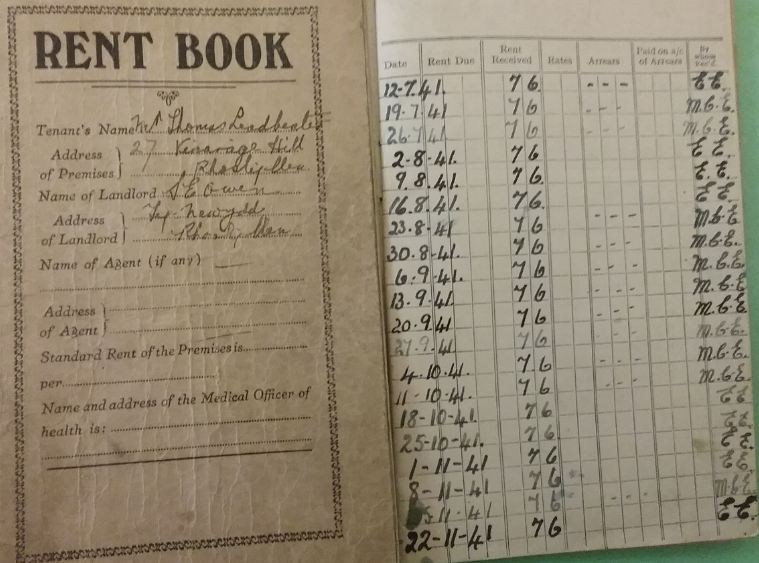 RENT BOOK
Tenant's Name Mr Thomas Leadbeater
Address of Premises 27 Vicarage Hill
Rhostyllen
Name of Landlord E Owen
Address of Landlord Ty Newydd
Rhostyllen
Name of Agent (if any)
Address of Agent
Standard Rent of the Premises is
per
Name and address of the Medical Officer of
health is:
Date Rent Due Rent Received Rates Arrears Paid on a/c of Arrears By whom rec'd
12-7.41. 7 6 - - - E E.
19.7.41 7 6 - - - M.E.E.
26.7.41 7 6 - - - M.E.E.
2-8-41. 7 6 E E.
9.8.41. 7 6 E. E.
16.8.41. 7 6 E E.
23.8-41 7 6 - - - M.E.E
30.8-41 7 6 - - - M.E.E.
6.9.41. 7 6 - - - M.E.E.
13.9.41 7 6 - - - M.E.E.
20.9.41 7 6 - - - M.E.E.
27.9.41 7 6 - - - M.E.E.
4.10.41. 7 6 - - - M.E.E.
11-10.41. 7 6 - - - M.E.E.
18-10-41. 7 6 E E
25-10-41. 7 6 E E.
1-11-41 7 6 E E.
8-11-41 7 6 E E.
11-41. 7 6 - - - M.E.E
22-11-41 7 6 E E.